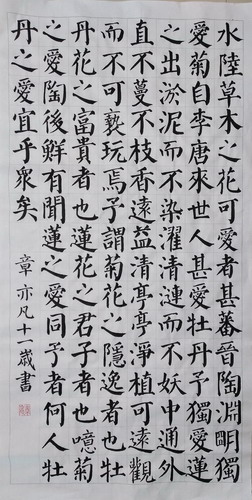 水陸草木之花可愛者甚蕃晉陶淵明獨
愛菊自李唐來世人甚愛牡丹予獨愛蓮
之出淤泥而不染濯清漣而不妖中通外
直不蔓不枝香遠益清亭亭淨植可遠觀
而不可褻玩焉予謂菊花之隱逸者也牡
丹花之富貴者也蓮花之君子者也噫菊
之愛陶後鮮有聞蓮之愛同予者何人牡
丹之愛宜乎衆矣
章亦凡十一歲書